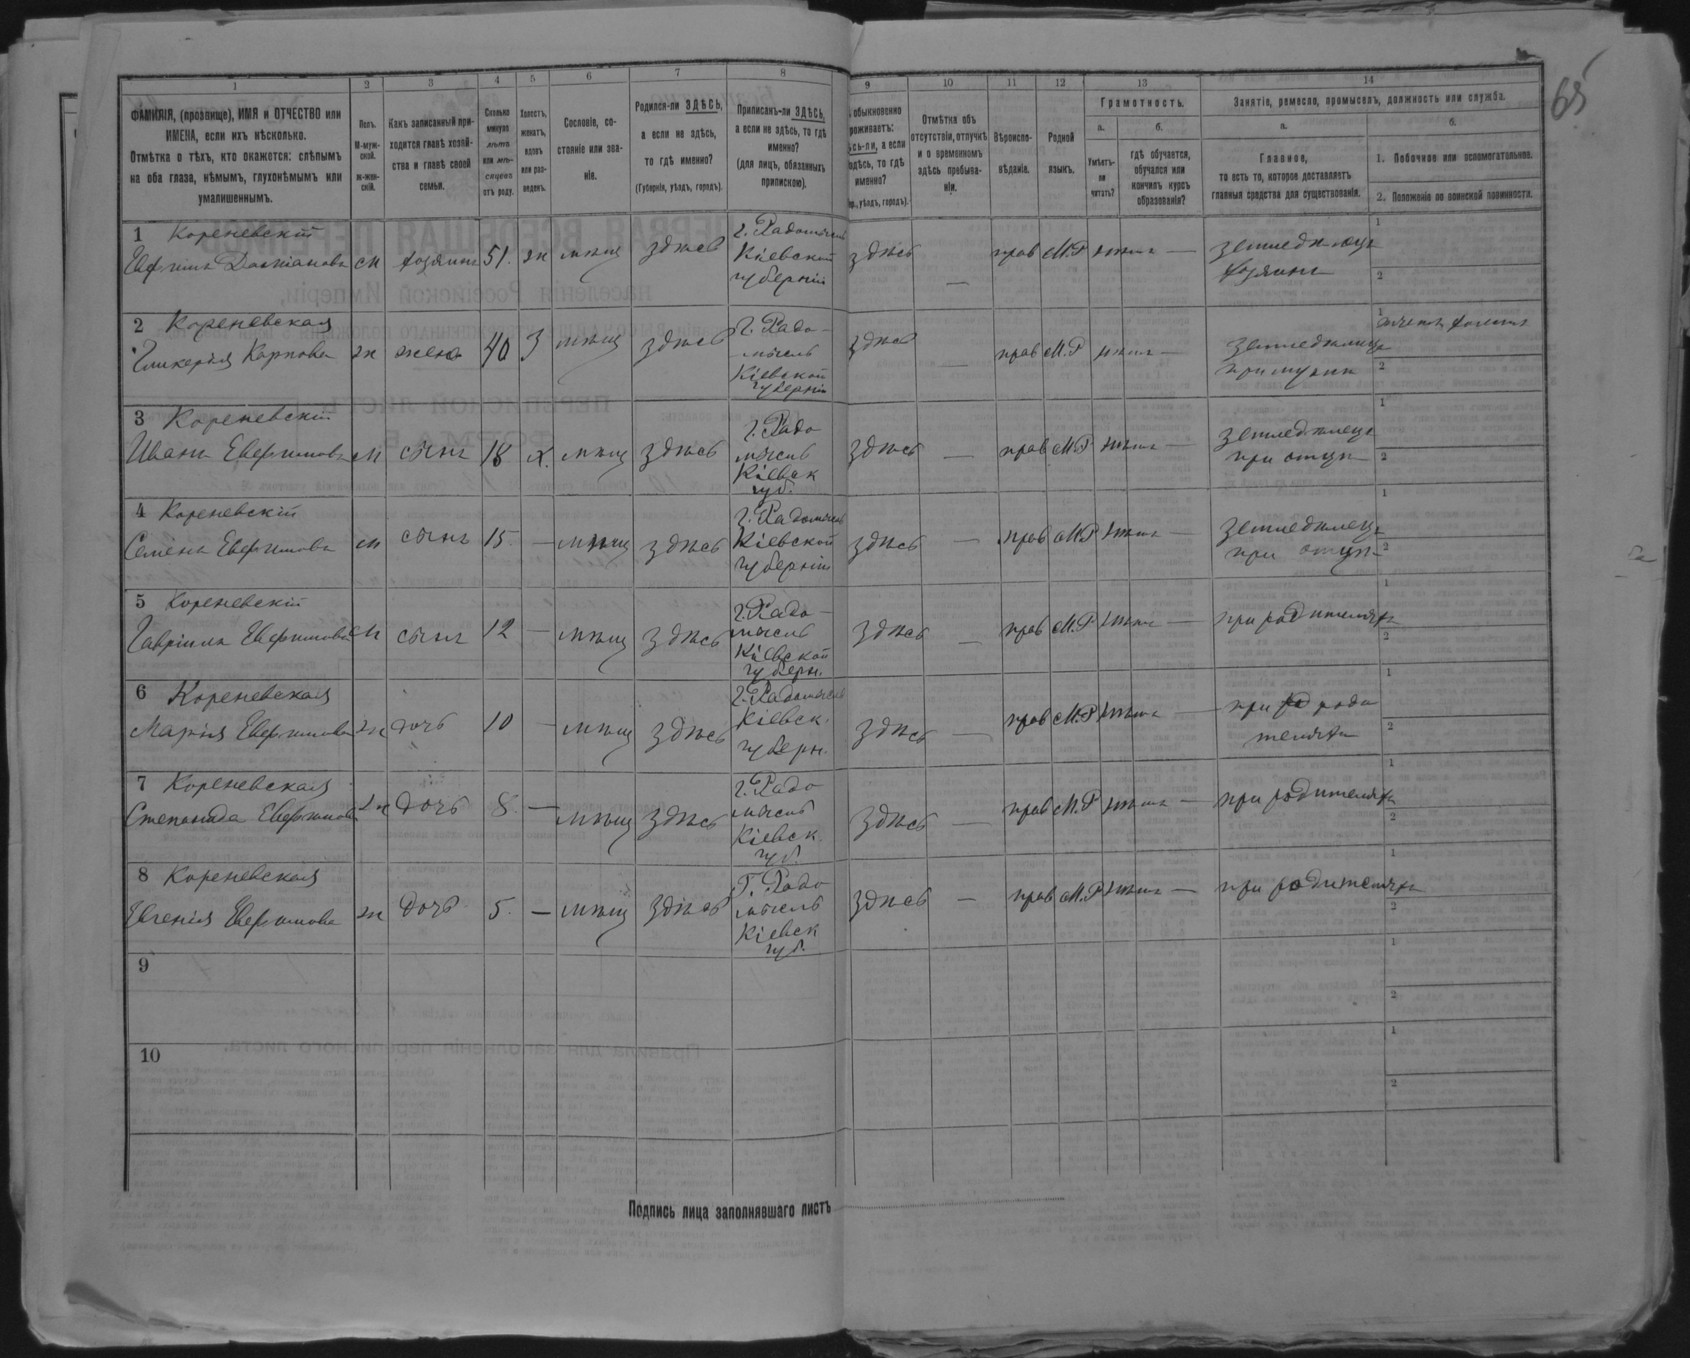 65
1 2 3 4 5 6 7 8 9 10 11 12 13 14
ФАМИЛІЯ, (прозвище), ИМЯ и ОТЧЕСТВО или
ИМЕНА, если ихъ нѣсколько.
Отмѣтка о тѣхъ, кто окажется: слѣпымъ
на оба глаза, нѣмымъ, глухонѣмымъ или
умалишеннымъ.
Полъ.
М-муж-
ской.
ж-жен-
скій.
Какъ записанный при-
ходится главѣ хозяй-
ства и главѣ своей
семьи.
Сколько
минуло
лѣтъ
или мѣ-
сяцевъ
отъ роду.
Холостъ,
женатъ,
вдовъ
или раз-
веденъ.
Сословіе, со-
стояніе или зва-
ніе.
Родился-ли ЗДѢСЬ,
а если не здѣсь,
то гдѣ именно?
(Губернія, уѣздъ, городъ).
Приписанъ-ли ЗДѢСЬ,
а если не здѣсь, то гдѣ
именно?
(для лицъ, обязанныхъ
припискою).
обыкновенно
роживаетъ:
сь-ли, а если
здѣсь, то гдѣ
именно?
уѣздъ, городъ).
Отмѣтка объ
отсутствіи, отлучкѣ
и о временномъ
здѣсь пребыва-
ніи.
Вѣроиспо-
вѣданіе.
Родной
языкъ.
Грамотность.
а.
Умѣетъ-
ли
читать?
б.
гдѣ обучается,
обучался или
кончилъ курсъ
образованія?
Занятіе, ремесло, промыселъ, должность или служба.
а.
Главное,
то есть то, которое доставляетъ
главныя средства для существованія.
б.
1. Побочное или вспомогательное.
2. Положеніе по воинской повинности.
1 Кореневскій
м хозяинъ 51. ж мѣщ здѣсь г. Радомысль Кіевской губерніи здѣсь — прав М.Р нѣтъ — земледѣлецъ хозяинъ 1 2
2 Кореневская
Гликерія Карпова ж жена 40 З мѣщ здѣсь г. Радо-мысль Кіевской губерніи здѣсь — прав М.Р нѣтъ — 1 2
3 Кореневскій
Иванъ Евфимовъ м сынъ 18 х. мѣщ здѣсь г. Радомысль Кіевск губ. здѣсь — прав. М.Р нѣтъ — земледѣлецъ при отцѣ 1 2
4 Кореневскій
Семёнъ Евфимовъ м сынъ 15 — мѣщ здѣсь г. Радомысль Кіевской губерніи здѣсь — прав М.Р нѣтъ — земледѣлецъ при отцѣ 1 2
5 Кореневскій
Гавріилъ Евфимовъ м сынъ 12 — мѣщ здѣсь г. Радо-мысль Кіевской губерн. здѣсь — прав М.Р нѣтъ — при родителяхъ 1 2
6 Кореневская
Марія Евфимова ж дочь 10 — мѣщ здѣсь г. Радомысль Кіевск. губерн. здѣсь — прав М.Р нѣтъ — при родителяхъ 1 2
7 Кореневская
Степанида Евфимова ж дочь 8 — мѣщ здѣсь г. Радомысль Кіевск губ. здѣсь — прав М.Р нѣтъ — при родителяхъ 1 2
8 Кореневская
Евгенія Евфимова ж дочь 5. — мѣщ здѣсь Г. Радомысль Кіевск губ. здѣсь — прав М.Р нѣтъ — при родителяхъ 1 2
9 1 2
10 1 2
Подпись лица заполнявшаго листъ